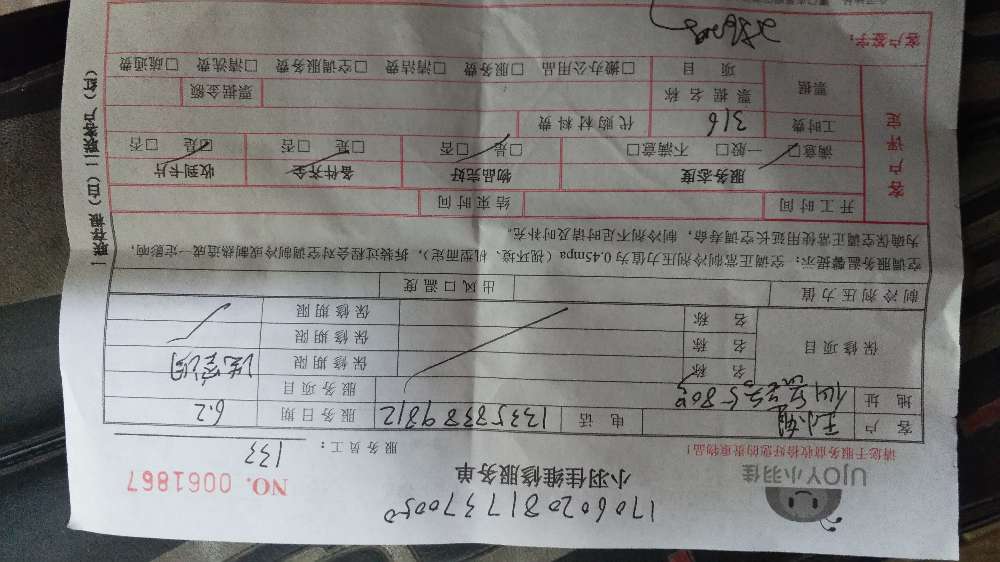 1706020817370050
UJOY小羽佳
小羽佳维修服务单
NO. 0061867
请您于服务前收拾好您的贵重物品!
服务员工: 133
客 户 电 话 13358389812 服务日期 6.2
地 址 服务项目
保修项目 名 称 保修期限
名 称 保修期限
名 称 保修期限
制冷剂压力值 出风口温度
空调服务温馨提示: 空调正常制冷剂压力值为0.45mpa(视环境、机型而定), 拆装过程会对空调制冷或制热造成一定影响,
为确保空调正常使用延长空调寿命, 制冷剂不足时请及时补充。
开工时间 结束时间
客户评定
服务态度 物品完好 备件齐全 收到卡片
满意□ 一般□ 不满意□ □是 □否 □是 □否 □是 □否
工时费 316 代购材料费
票据 票据名称 票据金额
项 目 □擦办公用品 □服务费 □清洁费 □空调服务费 □清洗费 □疏通费
客户签字:
一联存根(白)二联客户(红)